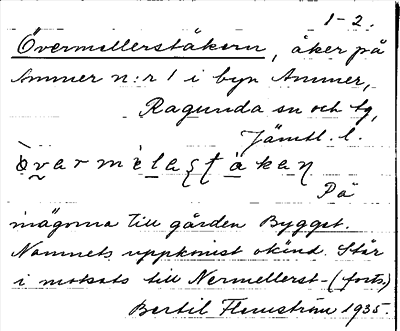 1-2.
Övermellerståkern, åker på
Ammer n:r 1 i byn Ammer,
Ragunda sn och tg,
Jämtl. l.
På
mägorna till gården Byggst.
Namnets uppkomst okänd. Står
i motsats till Nermellerst- (forts)
Bertil Flemström 1935.